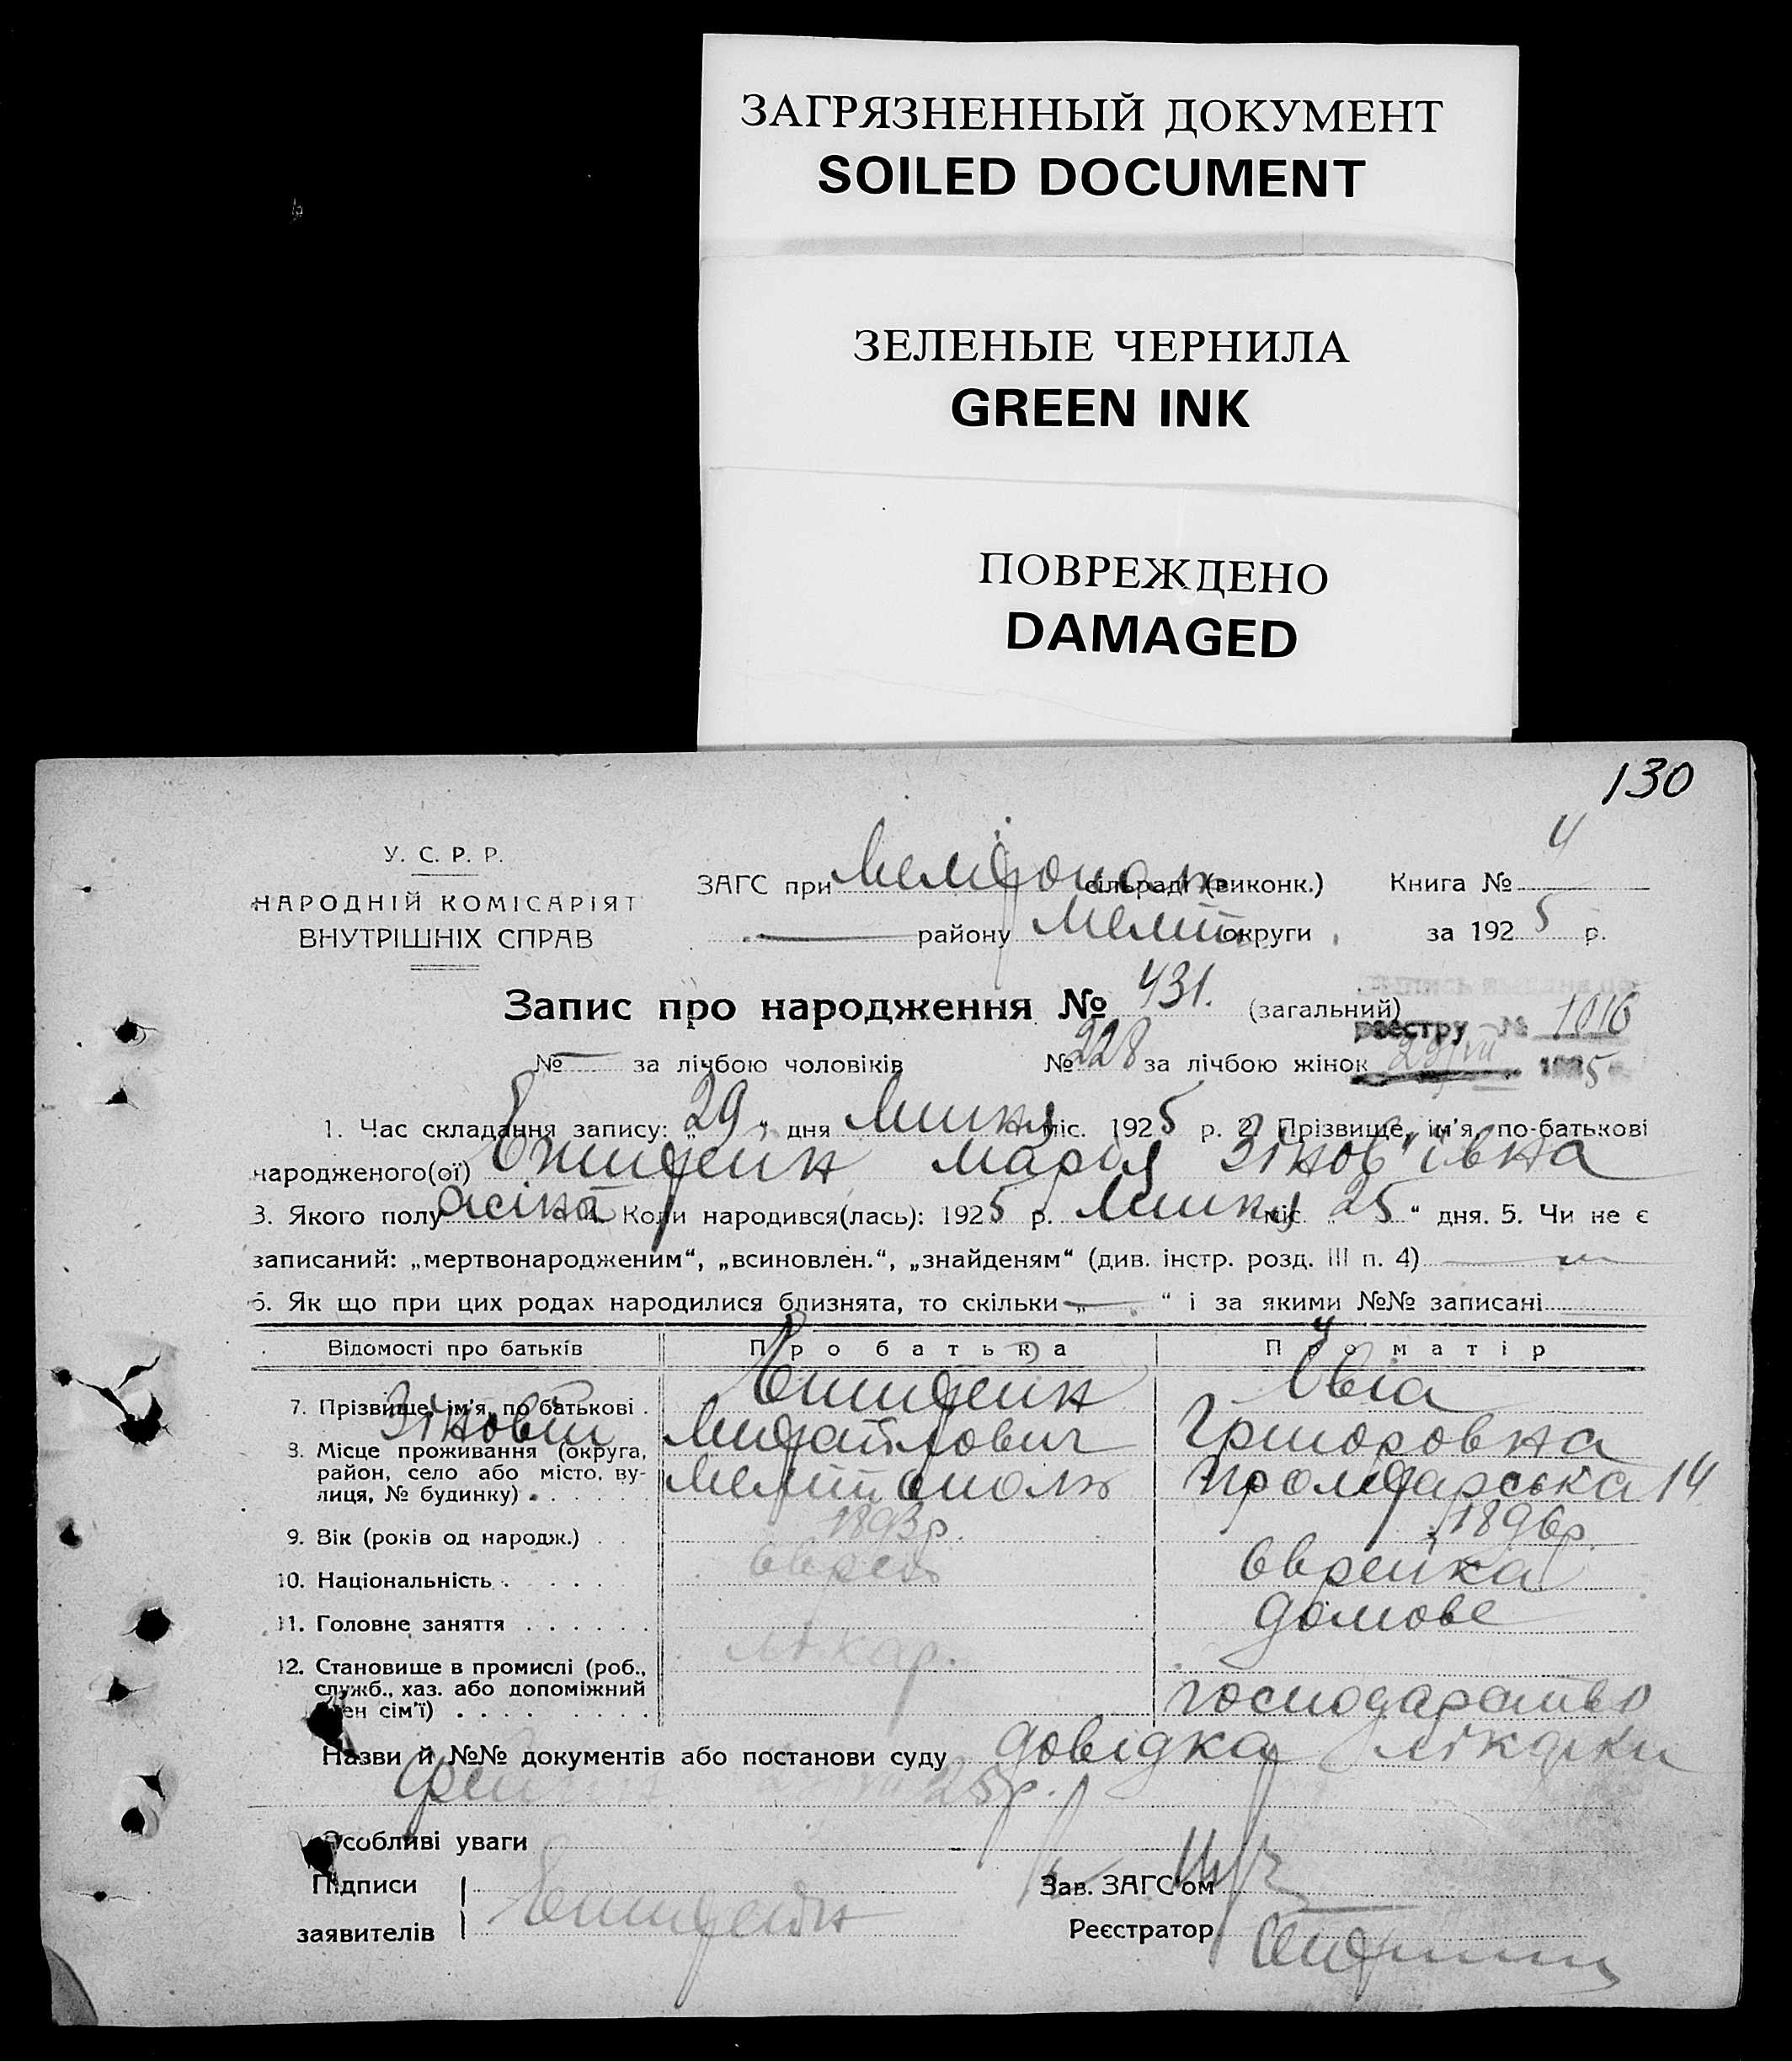 ЗАГРЯЗНЕННЫЙ ДОКУМЕНТ
SOILED DOCUMENT
ЗЕЛЕНЫЕ ЧЕРНИЛА
GREEN INK
ПОВРЕЖДЕНО
DAMAGED
130
У. С. Р. Р.
НАРОДНІЙ КОМІСАРІЯТ
ВНУТРІШНІХ СПРАВ
ЗАГС при сільраді (виконк.) Книга № 4
району Меліт. округи за 1925 р.
Запис про народження № 431. (загальний)
реєстру № 1016
№ — за лічбою чоловіків № 228 за лічбою жінок 29/VII 1925
1. Час складання запису: „29“ дня Липня міс. 1925 р. 2. Прізвище, ім'я, по-батькові
народженого(ої) Епштейн Марія Зінов'ївна
3. Якого полу 4. Коли народився(лась): 1925 р. Липня міс. „25“ дня. 5. Чи не є
записаний: „мертвонародженим“, „всиновлен.“, „знайденям“ (див. інстр. розд. III п. 4) —
6. Як що при цих родах народилися близнята, то скільки „—“ і за якими №№ записані
Відомості про батьків Про батька Про матір
7. Прізвище, ім'я, по батькові Зіновій Епштейн Михайлович Григоровна
8. Місце проживання (округа,
район, село або місто, ву-
лиця, № будинку) Мелітополь Пролітарська 14
9. Вік (років од народж.) 1893р. 1896р.
10. Національність еврей еврейка
11. Головне заняття лікар. домове
12. Становище в промислі (роб.,
служб., хаз. або допоміжний
член сім'ї) господарство
Назви й №№ документів або постанови суду довідка лікарки
25р.
Особливі уваги
Підписи
заявителів Епштейн
Зав. ЗАГС'ом
Реєстратор